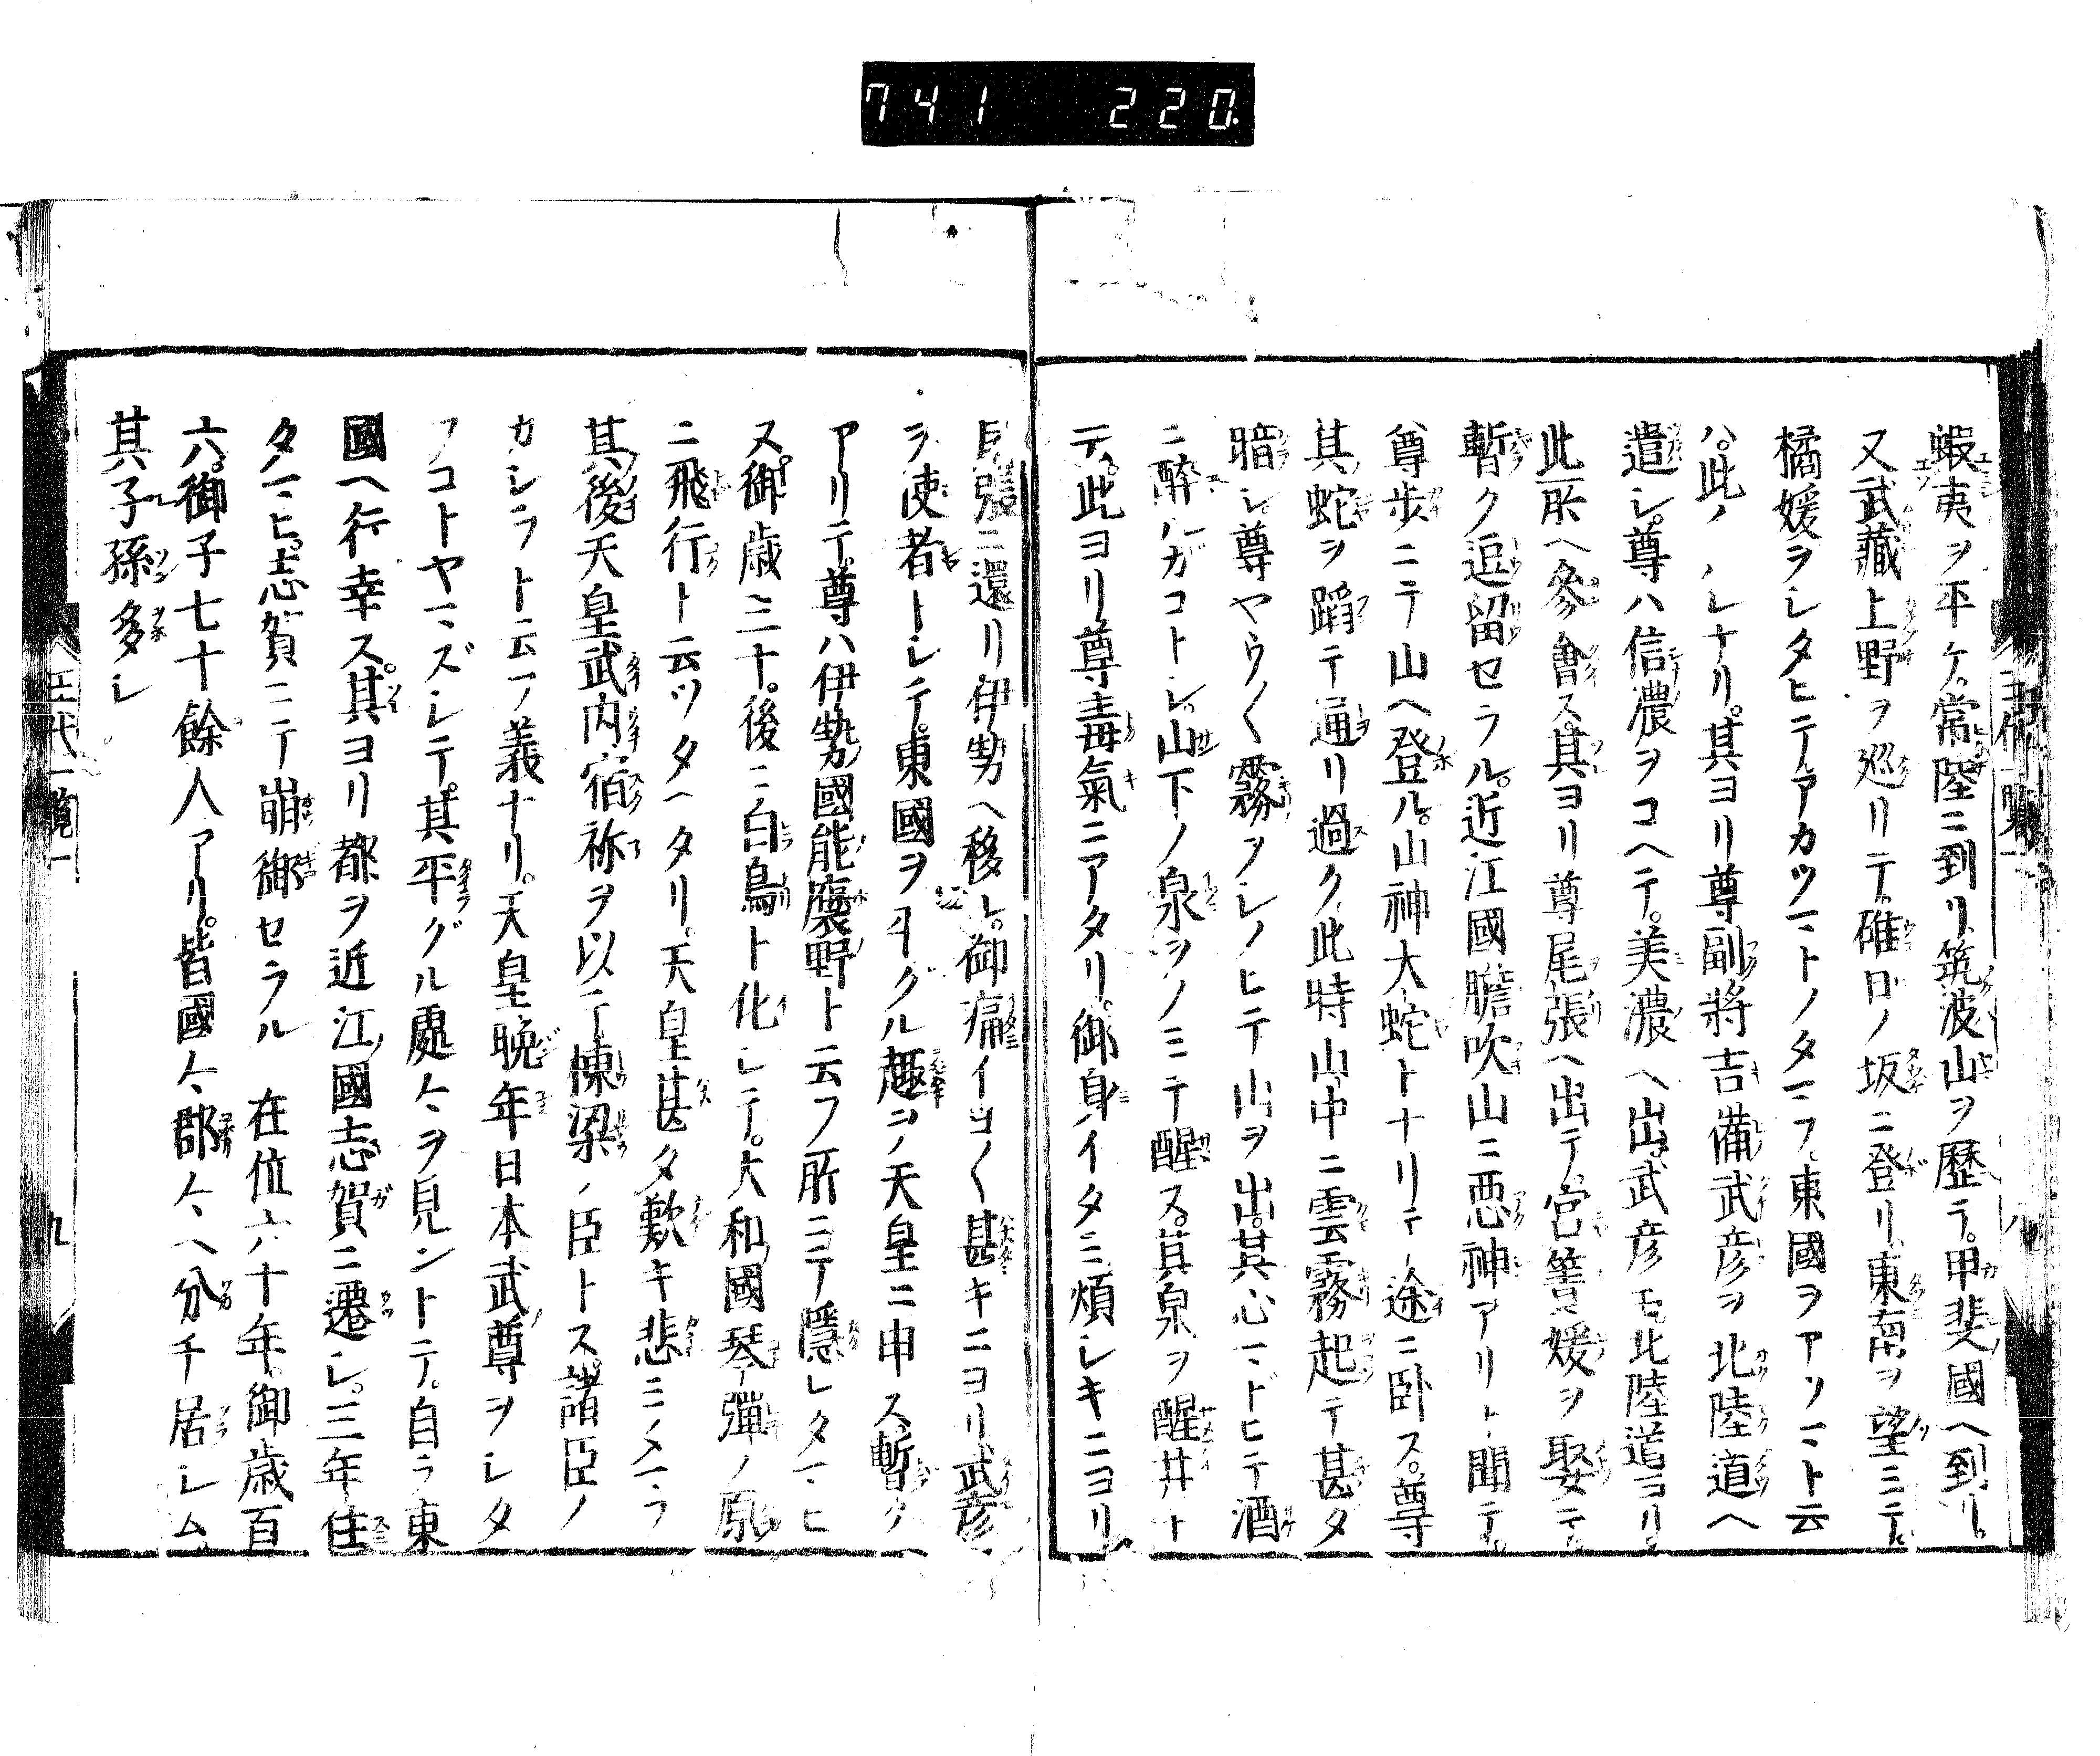 741 220
蝦夷ヲ平ケ。常陸ニ到リ筑波山ヲ歴テ。甲斐國ヘ到リ。
又武藏上野ヲ巡リテ。碓日ノ坂ニ登リ東南ヲ望ミテ。
橘媛ヲシタヒテアカツマトノタマフ。東國ヲアツマト云
ハ。此ノ シナリ。其ヨリ尊副將吉備武彦ヲ北陸道ヘ
遣シ。尊ハ信濃ヲコヘテ。美濃ヘ出。武彦モ北陸道ヨリ。
此所ヘ參會ス。其ヨリ尊尾張ヘ出テ。宮簀媛ヲ娶テ。
暫ク逗留セラル。近江國膽吹山ニ惡神アリト聞テ。
尊歩ニテ山ヘ登ル。山神大蛇トナリテ途ニ卧ス。尊
其蛇ヲ蹈テ通リ過ク此時山中ニ雲霧起テ甚タ
暗シ尊ヤウ〱霧ヲシノヒテ山ヲ出。其心マドヒテ酒
ニ醉ルガコトシ。山下ノ泉ヲノミテ醒ス。其泉ヲ醒井ト
テ。此ヨリ尊毒氣ニアタリ。御身イタミ煩シキニヨリ
尾張ニ還リ伊勢ヘ移レ。御痛イヨ〱甚キニヨリ武彦
ヲ使者トシテ。東國ヲ平グル趣ヲ天皇ニ申ス暫ク
アリテ。尊ハ伊勢國能褒野ト云フ所ニテ隱レタマヒ
ヌ。御歳三十。後ニ白鳥ト化シテ。大和國琴彈ノ原
ニ飛行ト云ツタヘタリ。天皇甚タ歎キ悲ミタマフ
其後天皇武内宿祢ヲ以テ棟梁ノ臣トス。諸臣ノ
カシラト云フ義ナリ。天皇晩年日本武尊ヲシタ
フコトヤマズシテ。其平グル處々ヲ見ントテ。自ラ東
國ヘ行幸ス。其ヨリ都ヲ近江國志賀ニ遷シ。三年住
タマヒ。志賀ニテ崩御セラル 在位六十年。御歳百
六。御子七十餘人アリ。皆國々郡々ヘ分チ居シム。
其子孫多シ
王代一覽一
九